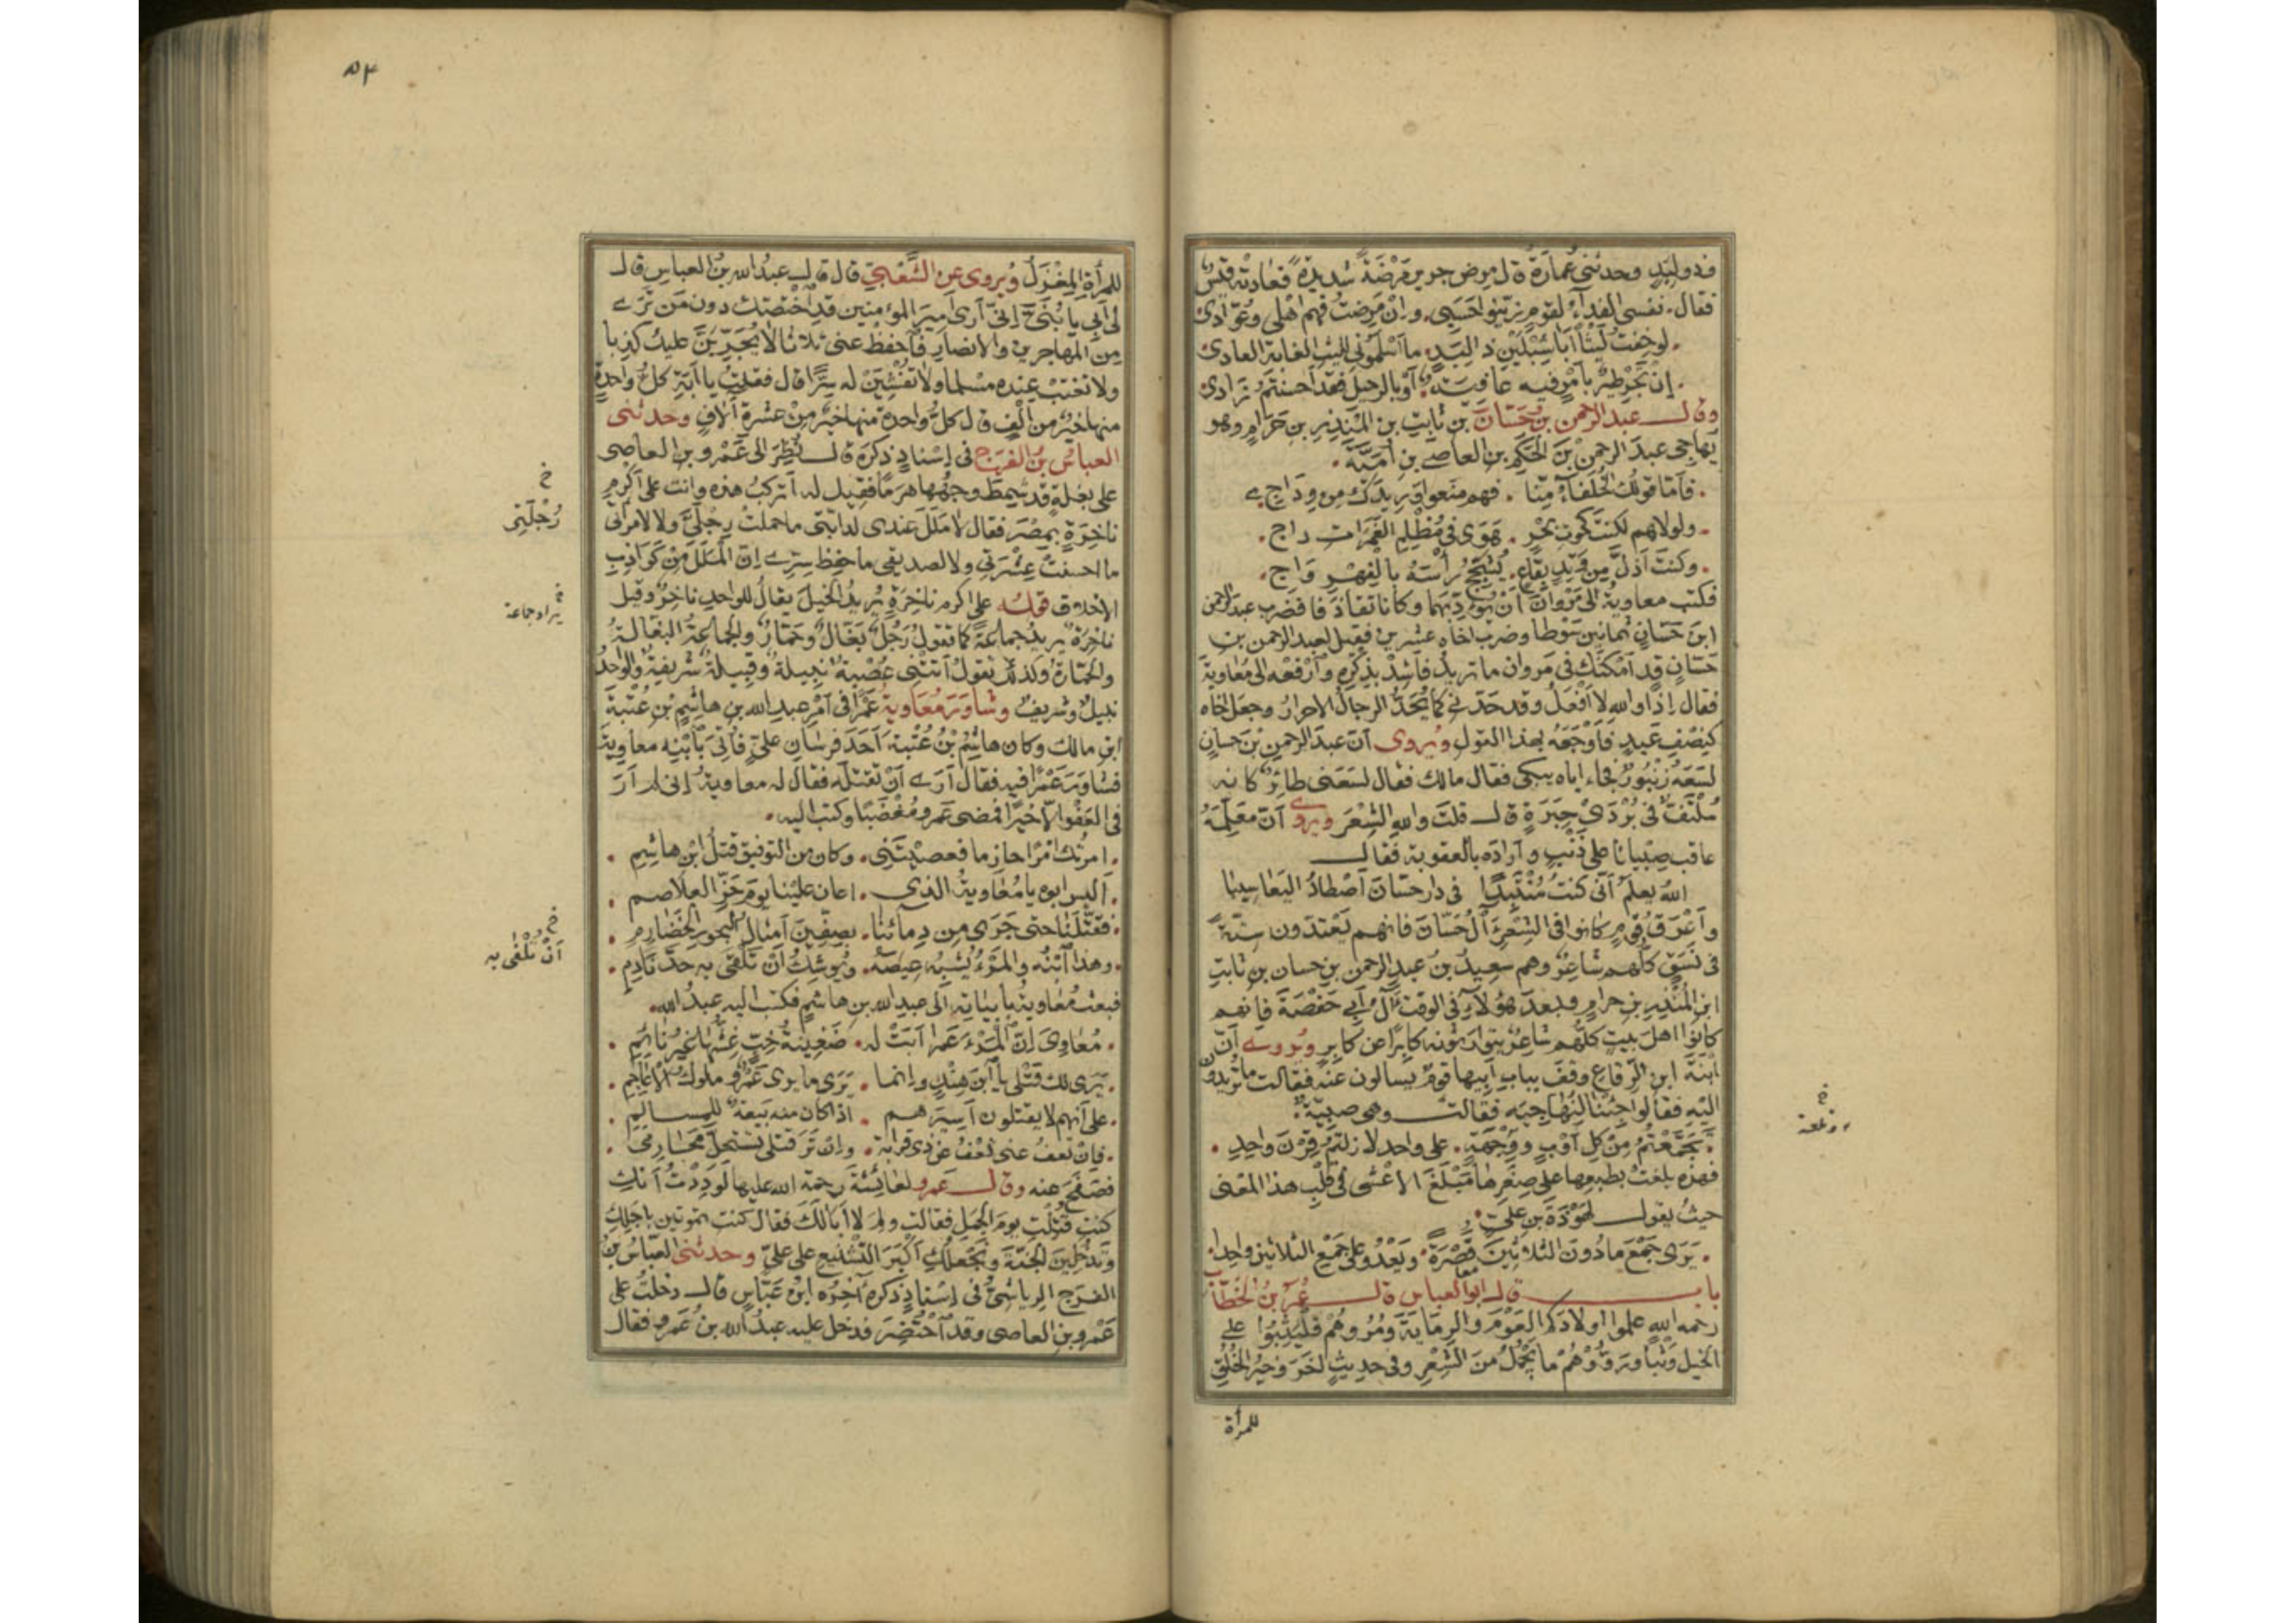 فذو لِبَدٍ وحدثني عُمارَة قال مرض جرير مَرْضَةً شديدةً فعادته قيسٌ
فقال . نفسي الفداءُ لقومٍ زيّنوا حَسَبي . وإنْ مَرِضتُ فهم أهلي وعُوّادي
. لو خِفتُ ليثًا أبا شِبْلَيْنِ ذا لِبَدٍ . ما أسْلَموني لليث الغابة العادي
. إنْ تَجْرِ طيرٌ بأمرٍ فيه عافيةٌ . أو بالرحيل فقد أحسنتمُ زادي
وقال عبد الرحمن بن حَسّان بن ثابت بن المُنذِر بن حَرَام وهو
يهاجي عبدَ الرحمن بنَ الحَكَم بن العاصي بن أميّة .
. فأمّا قولك الخُلَفاءُ مِنّا . فهم منعوا وريدك من وِداجي
. ولولاهم لكنتَ كحوت بحرٍ . هَوَى في مُظلِم الغَمَرات داجِ .
. وكنتَ أذلَّ من وَتِدٍ بقاعٍ . يُشَجِّجُ رأسَهُ بالفِهْرِ وَاجِ .
فكتب معاوية إلى مَرْوانَ أنْ يؤدّبهما وكانا تقاذفا فضرب عبدَ الرحمن
ابنَ حَسّان ثمانين سَوْطا وضرب أخاه عشرين فقيل لعبد الرحمن بن
حَسّان قد أمْكَنَك في مروان ما تريد فأشِدْ بذكره وارْفَعْه إلى مُعاوية
فقال إذًا والله لا أفْعَلُ وقد حَدَّني كما يُحَدُّ الرجالُ الأحرارُ وجعل أخاه
كنِصْفِ عَبدٍ فأوْجَعَهُ بهذا القول ويُروى أنّ عبدَ الرحمن بن حسان
لسَعَهُ زُنبورٌ فجاء أباه يبكي فقال مالك فقال لسَعَني طائرٌ كأنه
مُلْتَفٌّ في بُرْدَيْ حِبَرَةٍ قال قلتَ والله الشِعْرَ ويروى أنّ معلمه
عاقب صِبيانا على ذنْبٍ وأرادَه بالعقوبة فقال
اللهُ يعلمُ أنّي كنتُ مُنْتَبِذًا في دار حَسّانَ أصْطادُ اليَعاسِيبا
وأعْرَقُ قومٍ كانوا في الشِعْرِ آلُ حَسّانَ فإنهم يَعْتدّون سِتّةً
في نَسَقٍ كلّهم شاعِرٌ وهم سعيدُ بنُ عبدِ الرحمن بنِ حسان بن ثابت
ابن المُنْذِر بن حرام وبعدَ هؤلاءِ في الوقت آلُ أبي حَفْصَةَ فإنهم
كانوا أهلَ بيتٍ كلُّهم شاعِرٌ يتوارثونه كابرًا عن كابرٍ ويُروى أنّ
ابْنَةَ ابن الرّقاع وقَفَ بباب أبيها قومٌ يسألون عنه فقالت ما تريدون
إليه فقالوا جِئْنا لنُهاجِيَه فقالت وهي صبيّة :
. تَجَمَّعْتُمُ من كلّ أوْبٍ ووِجْهَةٍ . على واحدٍ لا زلتمُ قِرْنَ واحِدِ .
فهذه بلغت بطبعها على صِغَرِها مَبْلَغَ الأعْشى في قَلْبِ هذا المعنى
حيث يقول لهَوْذَةَ بن عليّ .
. يَرَى جَمْعَ ما دُونَ الثلاثينَ قُصْرَةً . ويَعْدُو على جَمْعِ الثلاثين واحِدا .
باب قال أبو العباس قال عُمَرُ بنُ الخَطّاب
رحمه الله علموا أولادَكم العَوْمَ والرِمايةَ ومُرُوهُمْ فَلْيَثِبُوا على
الخيل وَثْبًا ورَوُّوهُمْ ما يَجْمُلُ من الشِعْرِ وفي حديثٍ آخَرَ وخيرُ الخُلُقِ
للمرأة
وبلغة
خ
٥٣
للمرأة المِغْزَلُ ويُروى عن الشَّعْبِيّ قال قال عبدُ الله بنُ العباس قال
لي أبي يا بُنَيَّ إنّي أرى أميرَ المؤمنين قد اخْتَصّك دون مَن تَرَى
من المهاجرين والأنصار فاحفظْ عني ثلاثا لا يُجَرِّبَنَّ عليك كذبا
ولا تغتبْ عنده مسلما ولا تُفْشِيَنَّ له سِرًّا قال فقلت يا أبَةِ كلُّ واحدةٍ
منها خيرٌ من ألْفٍ قال كلُّ واحدةٍ منها خيرٌ من عشرة آلافٍ وحدثني
العباسُ بنُ الفرَج في إسْنادٍ ذكره قال نُظِرَ إلى عَمْرو بن العاصي
على بغلةٍ قد شَمِطَ وجهُها هرَمًا فقيل له أتركبُ هذه وأنت على أكرمِ
ناخِرَةٍ بمِصْرَ فقال لا مَلَلَ عندي لدابّتي ما حملتْ رِجْلَيَّ ولا لامرأتي
ما أحسنتْ عِشْرَتي ولا لصديقي ما حفِظ سِرّي إن المَلَلَ من كَواذِبِ
الأخلاق قولُه على أكرم ناخِرَةٍ يُريدُ الخيلَ يقالُ للواحد ناخِرٌ وقيل
ناخِرَةٌ يريدُ جماعةً كما تقولُ رَجُلٌ بَغّالٌ وحَمّارٌ والجماعةُ البَغّالَةُ
والحَمّارَةُ وكذلك تقولُ أتتْني عُصْبةٌ نبيلةٌ وقبيلةٌ شريفةٌ والواحدُ
نبيلٌ وشريفٌ وشاوَرَ مُعَاويةُ عَمْرًا في أمْرِ عبدِ الله بن هاشِم بن عُتْبةَ
ابن مالك وكان هاشِمُ بْنُ عُتْبةَ أحَدَ فرسانِ عليٍّ فأُتِيَ بابْنِه معاويةُ
فشاورَ عَمْرًا فيه فقال أرَى أنْ تقتلَه فقال له معاويةُ إني لم أرَ
في العَفْوِ إلّا خيْرًا فمضى عمرو مُغْضَبًا وكتب إليه .
. أمرتُك أمْرًا حازِما فعصيْتَني . وكان من التوفيق قتلُ ابْنِ هاشِمِ .
. أليس أبوه يا مُعاويةُ الذي . أعان علينا يومَ حَزِّ الغلاصمِ .
. فقَتَّلَنا حتى جَرَى من دمائنا . بصِفّينَ أمثالُ البحور الخَضارِمِ .
. وهذا ابْنُه والمَرْءُ يُشْبِهُ عِيصَهُ . ويُوشِكُ أنْ تَلْقى به جِدَّ نادِمِ .
فبعث مُعاويةُ بأبياته إلى عبدِ الله بن هاشِمٍ فكتب إليه عبدُ الله .
. مُعاويَ إنّ المَرْءَ عَمْرًا أبَتْ له . ضَغِينةُ خَبٍّ غِشُّها غيرُ نائمِ .
. يَرَى لك قَتْلي يا ابْنَ هِنْدٍ وإنّما . يَرَى ما يرى عَمْرٌو ملوكُ الأعاجِمِ .
. على أنهم لا يقتلون أسيرَهم . إذا كان منه بَيْعةٌ للمسالمِ .
. فإن تَعفُ عني تَعْفُ عن ذي قرابةٍ . وإن تَرَ قتلي تستحلَّ محارمي .
فصَفَحَ عنه وقال عَمرو لعائشةَ رحمة الله عليها لَوَدِدْتُ أنكِ
كنتِ قُتِلْتِ يومَ الجَمَلِ فقالت ولِمَ لا أبا لَكَ فقال كنتِ تموتين بأجَلِكِ
وتَدْخُلِينَ الجنّةَ ونَجْعَلُكِ أكْبَرَ التَّشْنيعِ على عليّ وحدثني العبّاسُ بنُ
الفرَج الرياشيُّ في إسنادٍ ذكره آخِرُه ابنُ عبّاس قال دخلتُ على
عَمْرو بن العاصي وقد احْتُضِرَ فدخل عليه عبدُ الله بن عَمرو فقال
خ
رُجْلَتِي
خ
يراد جماعة
خ
أنْ تُلْفَى به